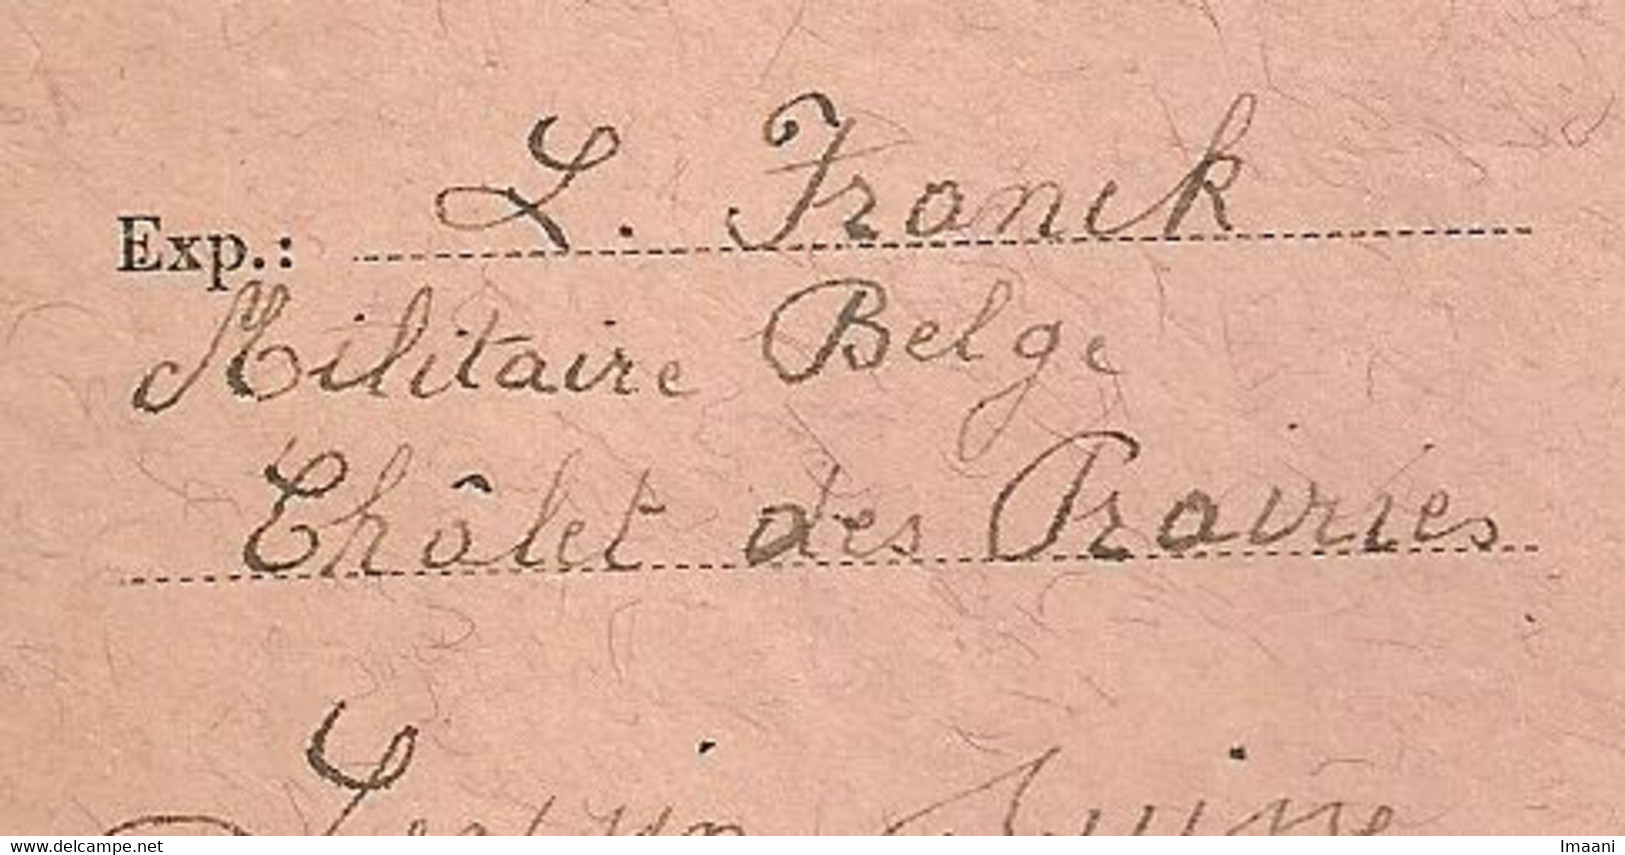 Exp.: L. Franck
Militaire Belge
Châlet des Prairies
Leysin Suisse
www.delcampe.net Imaani